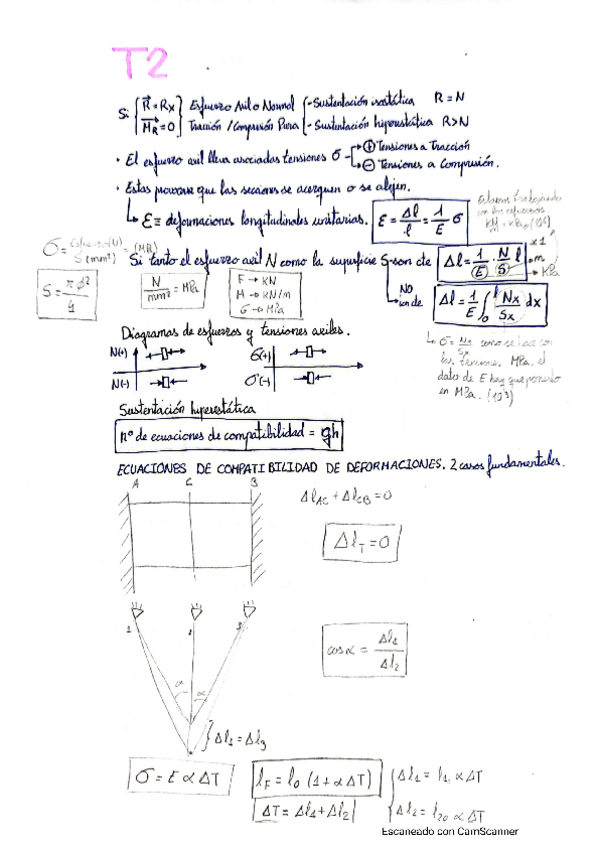 T2
Si { R = Rx } Esfuerzo Axil o Normal { - Sustentación isostática R = N
M_R = 0 } Tracción / Compresión Pura { - Sustentación hiperestática R > N
· El esfuerzo axil lleva asociadas tensiones σ → ⊕ Tensiones a Tracción
→ ⊖ Tensiones a Compresión.
· Estas provocan que las secciones se acerquen o se alejen.
↳ ε ≡ deformaciones longitudinales unitarias. ε = Δl / l = 1/E σ
Estamos trabajando
con los esfuerzos
σ = Esfuerzo(N) / S(mm²) = (MPa)
Si tanto el esfuerzo axil N como la superficie S son cte Δl = 1/E · N/S l
x 1
m
KPa
S = π ø² / 4
N / mm² = MPa
F → KN
M → KN/m
σ → MPa
NO
son cte Δl = 1/E ∫₀ˡ Nx/Sx dx
Diagramas de esfuerzos y tensiones axiles.
N(+) σ(+)
N(-) σ(-)
↳ σ = Nx/Sx como se hace con
las tensiones, MPa, el
dato de E hay que ponerlo
en MPa. (10³)
Sustentación hiperestática
nº de ecuaciones de compatibilidad = gh
ECUACIONES DE COMPATIBILIDAD DE DEFORMACIONES. 2 casos fundamentales.
A C B
Δl_AC + Δl_CB = 0
Δl_T = 0
1 2 3
cos α = Δl₁ / Δl₂
α α
Δl₁ = Δl₃
σ = E α ΔT
l_F = l₀ (1 + α ΔT)
Δl₁ = l₁₀ α ΔT
ΔT = Δl₁ + Δl₂
Δl₂ = l₂₀ α ΔT
Escaneado con CamScanner